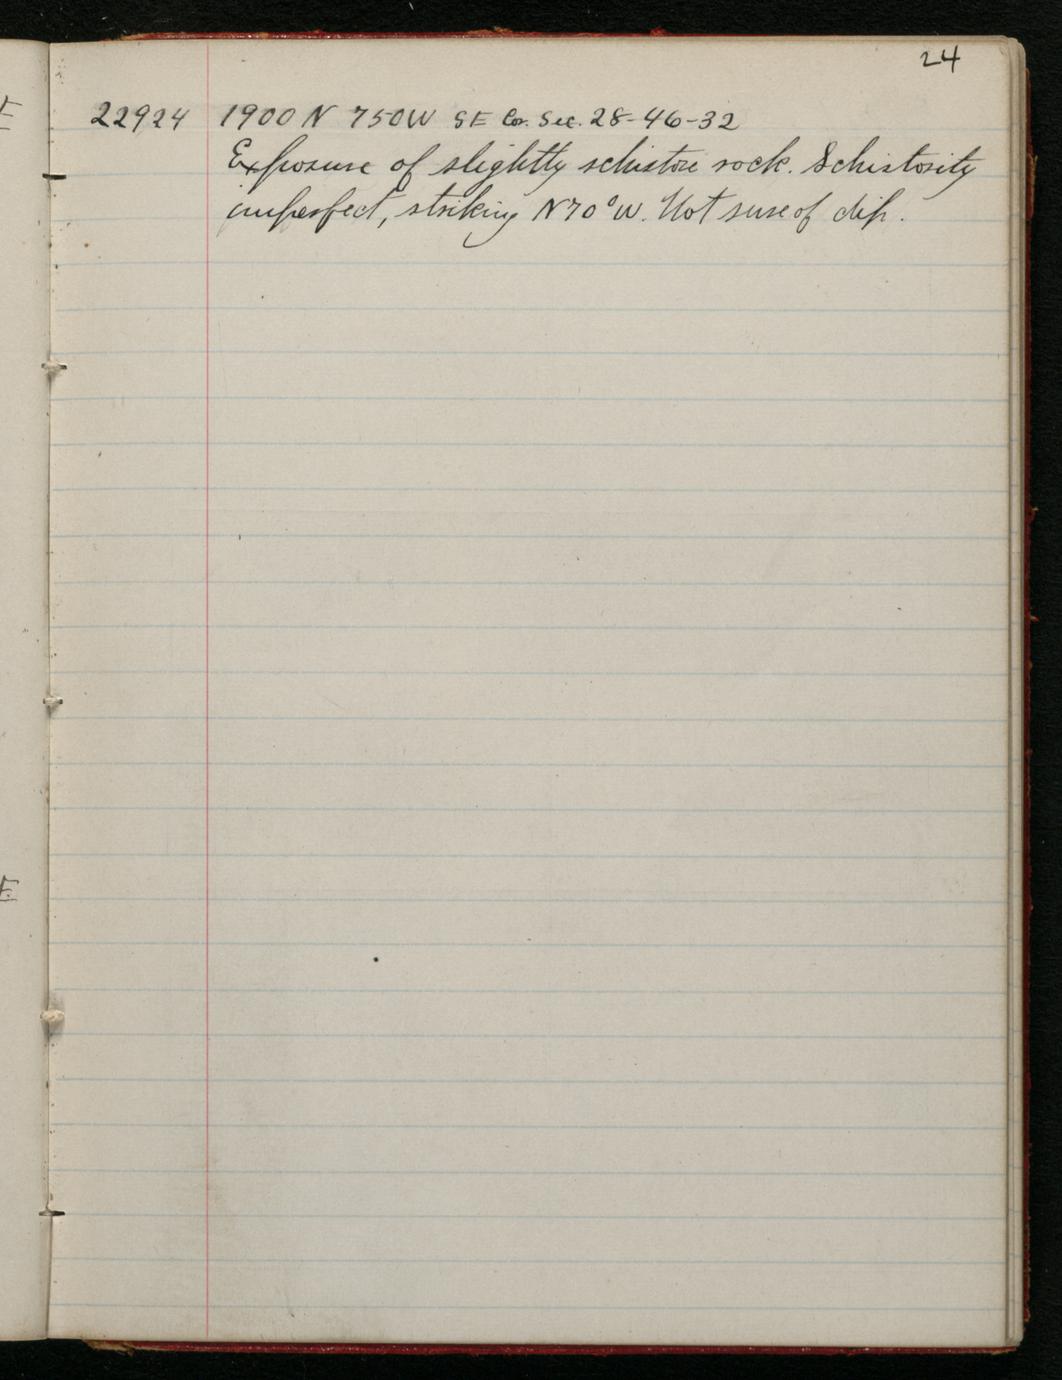 24
22924 1900 N 750W SE Cor. Sec. 28-46-32
Exposure of slightly schistose rock. Schistosity
imperfect, striking N70°W. Not sure of dip.
E
E